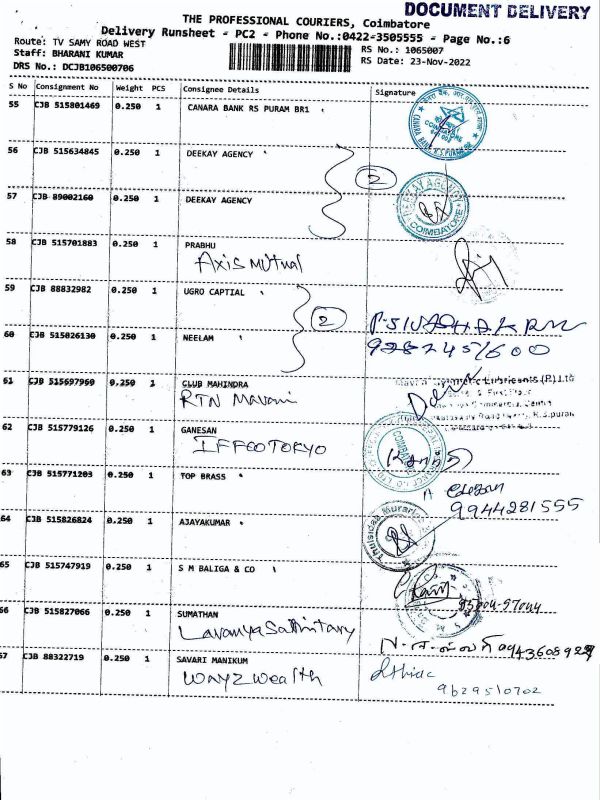 DOCUMENT DELIVERY
THE PROFESSIONAL COURIERS, Coimbatore
Delivery Runsheet - PC2 - Phone No.:0422-3505555 - Page No.:6
Route: TV SAMY ROAD WEST
RS No.: 1065007
Staff: BHARANI KUMAR
RS Date: 23-Nov-2022
DRS No.: DCJB106500706
S No Consignment No Weight PCS Consignee Details Signature
55 CJB 515801469 0.250 1 CANARA BANK RS PURAM BR1
56 CJB 515634845 0.250 1 DEEKAY AGENCY
2
57 CJB 89002160 0.250 1 DEEKAY AGENCY
DEEKAY AGENCY
COIMBATORE
58 CJB 515701883 0.250 1 PRABHU
Axis Mutual
59 CJB 88832982 0.250 1 UGRO CAPTIAL
2
60 CJB 515026130 0.250 1 NEELAM
61 CJB 515697960 0.250 1 CLUB MAHINDRA
RTN Mavani
62 CJB 515779126 0.250 1 GANESAN
IFFCO TOKYO
63 CJB 515771203 0.250 1 TOP BRASS
9944281555
64 CJB 515826824 0.250 1 AJAYAKUMAR
65 CJB 515747919 0.250 1 S M BALIGA & CO
66 CJB 515827066 0.250 1 SUMATHAN
Lavanya Sanitary
67 CJB 88322719 0.250 1 SAVARI MANIKUM
Wayz wealth
9629510702